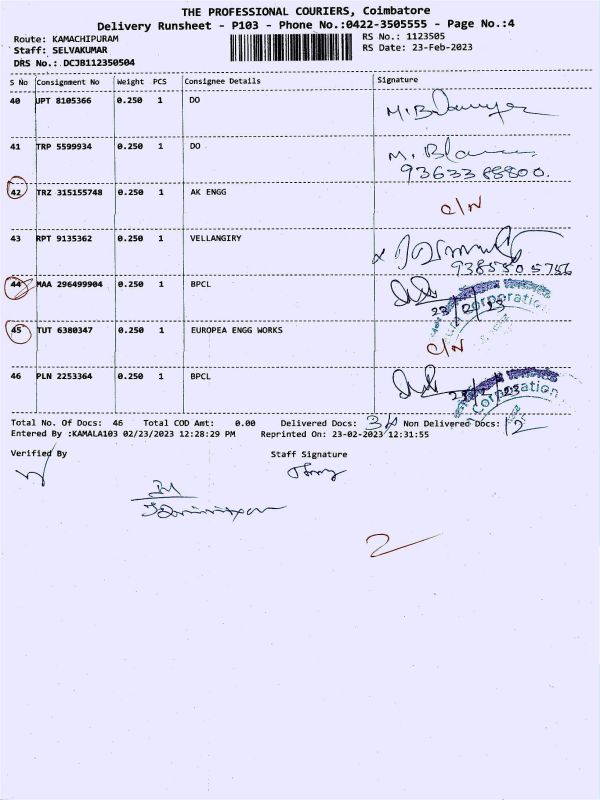 THE PROFESSIONAL COURIERS, Coimbatore
Delivery Runsheet - P103 - Phone No.:0422-3505555 - Page No.:4
Route: KAMACHIPURAM RS No.: 1123505
Staff: SELVAKUMAR RS Date: 23-Feb-2023
DRS No.: DCJB112350504
S No Consignment No Weight PCS Consignee Details Signature
40 UPT 8105366 0.250 1 DO
41 TRP 5599934 0.250 1 DO
9363388800.
42 TRZ 315155748 0.250 1 AK ENGG C/N
43 RPT 9135362 0.250 1 VELLANGIRY
9385505756
44 MAA 296499904 0.250 1 BPCL
23/2/23
45 TUT 6380347 0.250 1 EUROPEA ENGG WORKS C/N
46 PLN 2253364 0.250 1 BPCL
Total No. Of Docs: 46 Total COD Amt: 0.00 Delivered Docs: 34 Non Delivered Docs: 12
Entered By :KAMALA103 02/23/2023 12:28:29 PM Reprinted On: 23-02-2023 12:31:55
Verified By Staff Signature
2